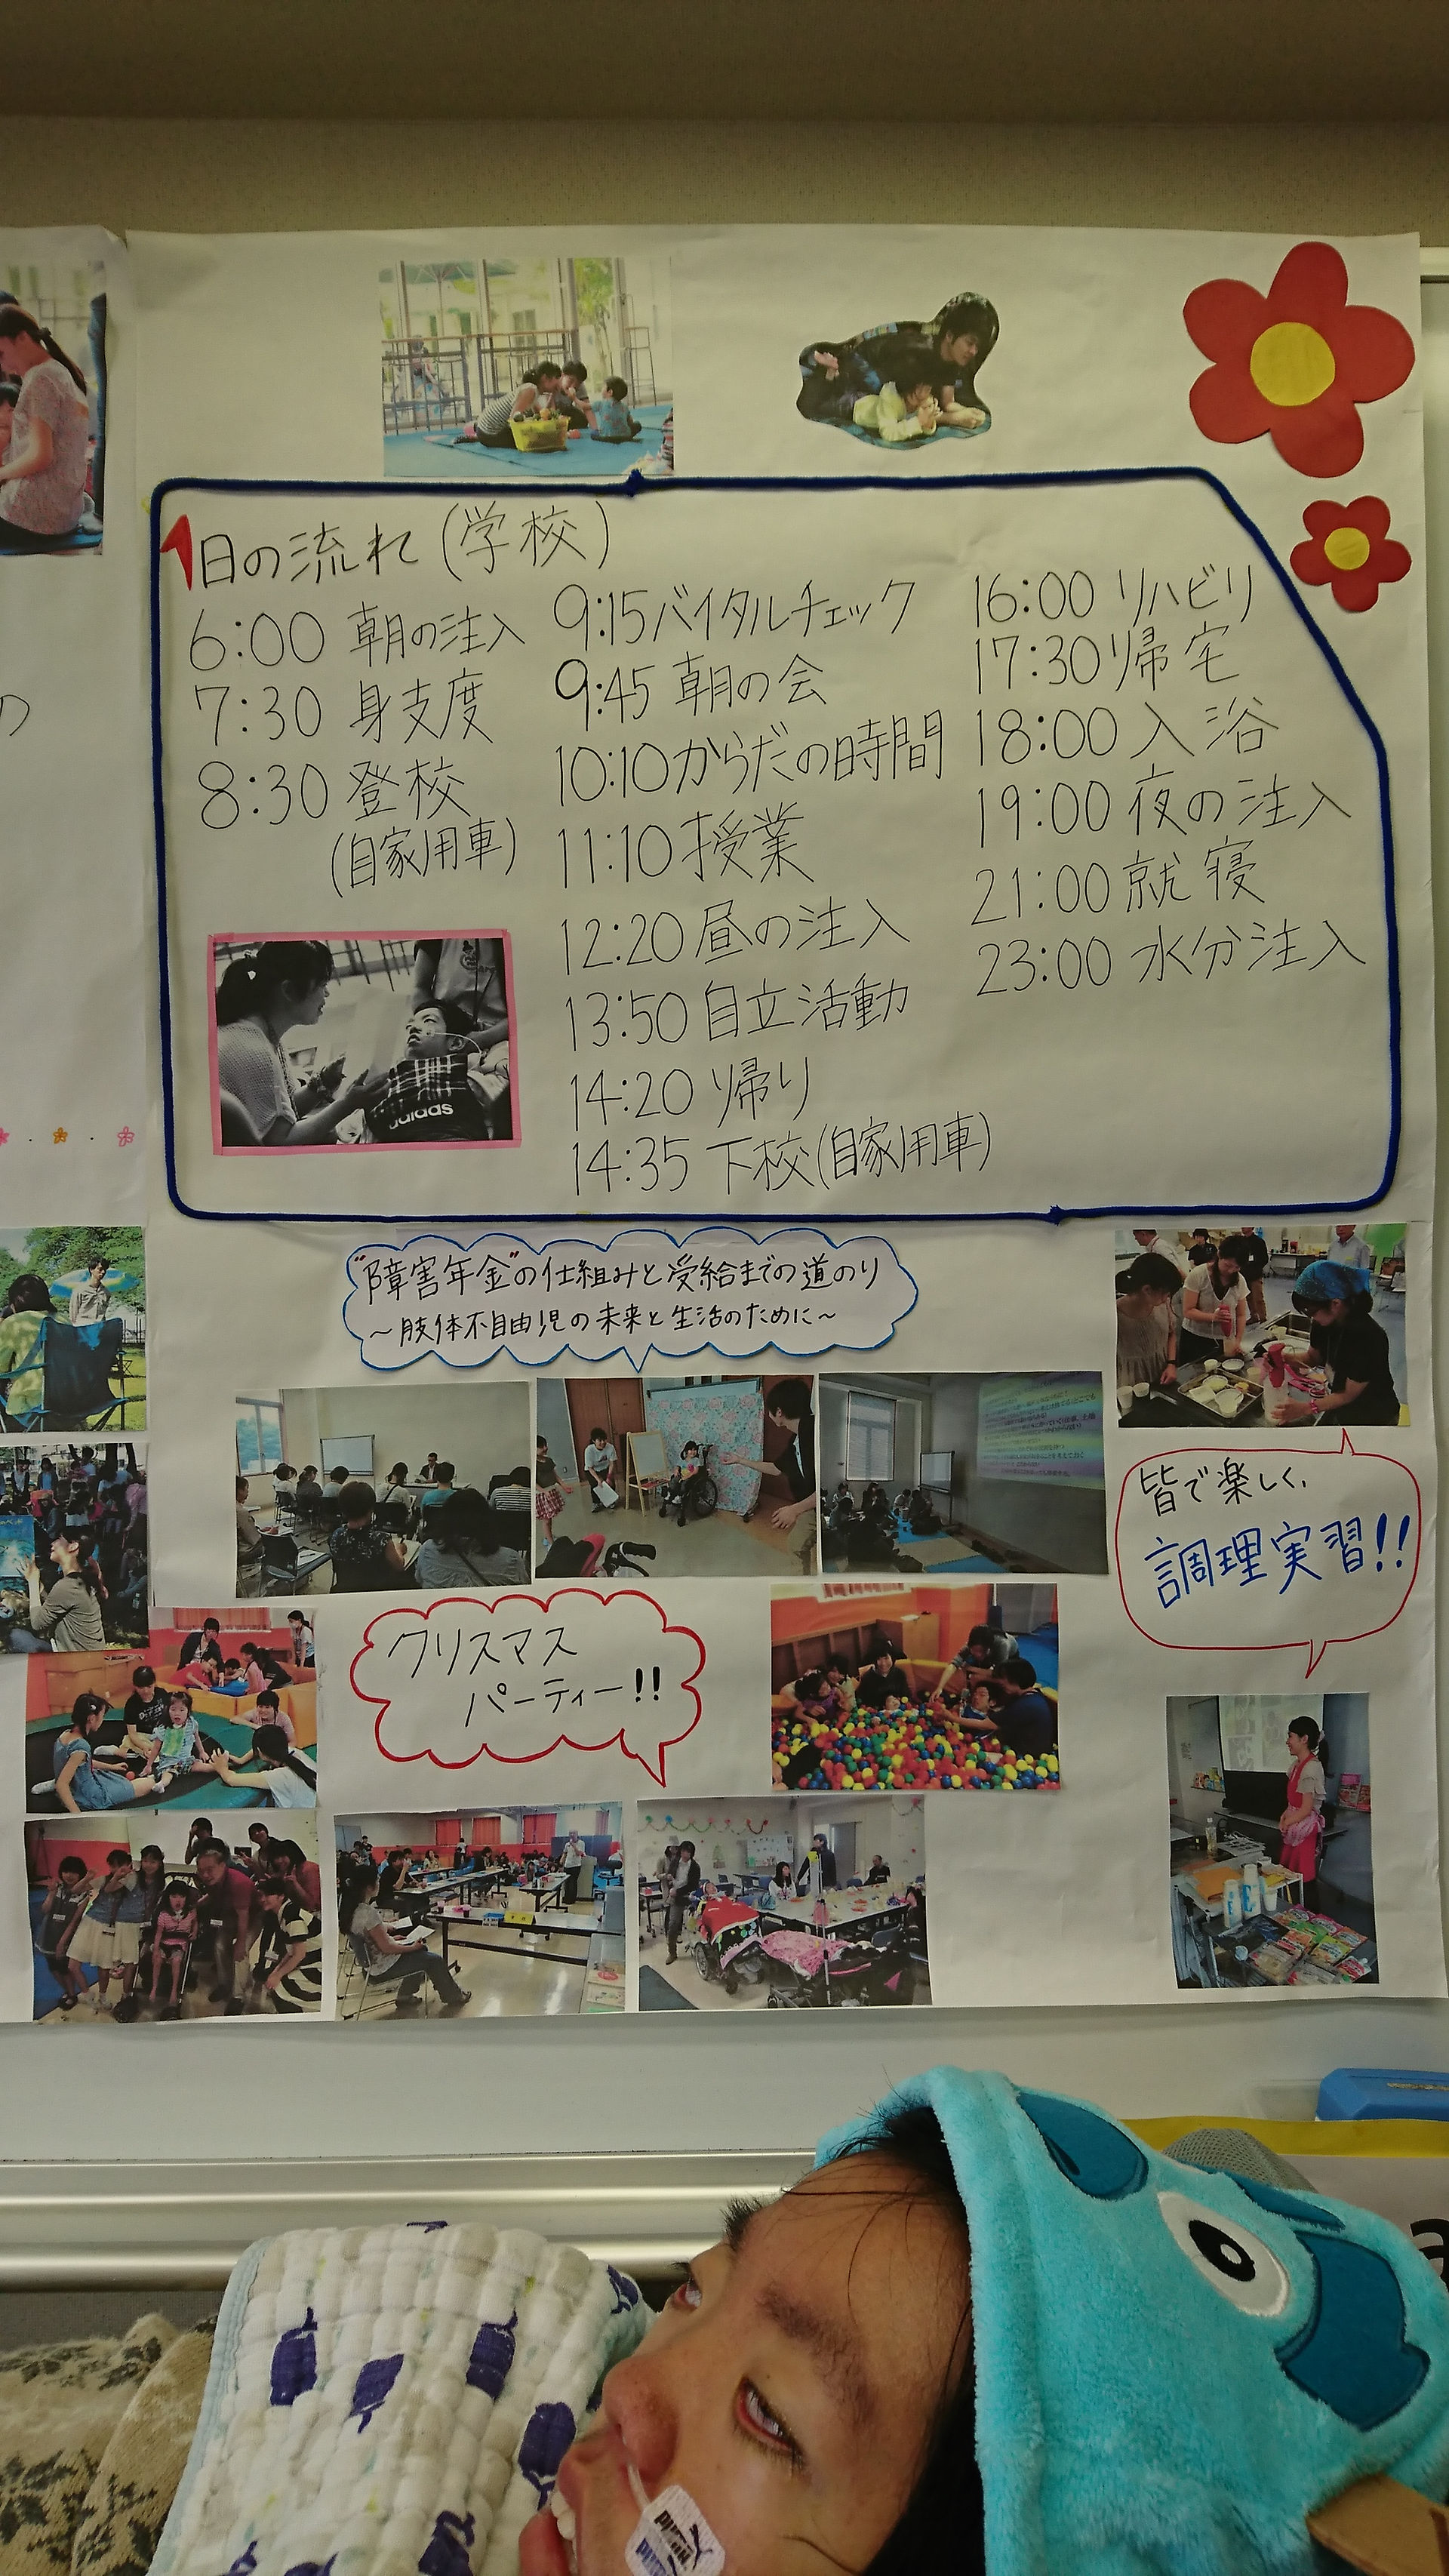 1日の流れ(学校)
6:00 朝の注入
7:30 身支度
8:30 登校
(自家用車)
9:15バイタルチェック
9:45 朝の会
10:10からだの時間
11:10授業
12:20昼の注入
13:50自立活動
14:20 帰り
14:35 下校(自家用車)
16:00 リハビリ
17:30帰宅
18:00入浴
19:00夜の注入
21:00就寝
23:00 水分注入
の
adidas
"障害年金"の仕組みと受給までの道のり
～肢体不自由児の未来と生活のために～
皆で楽しく、
調理実習!!
クリスマス
パーティー!!
PUMA
a